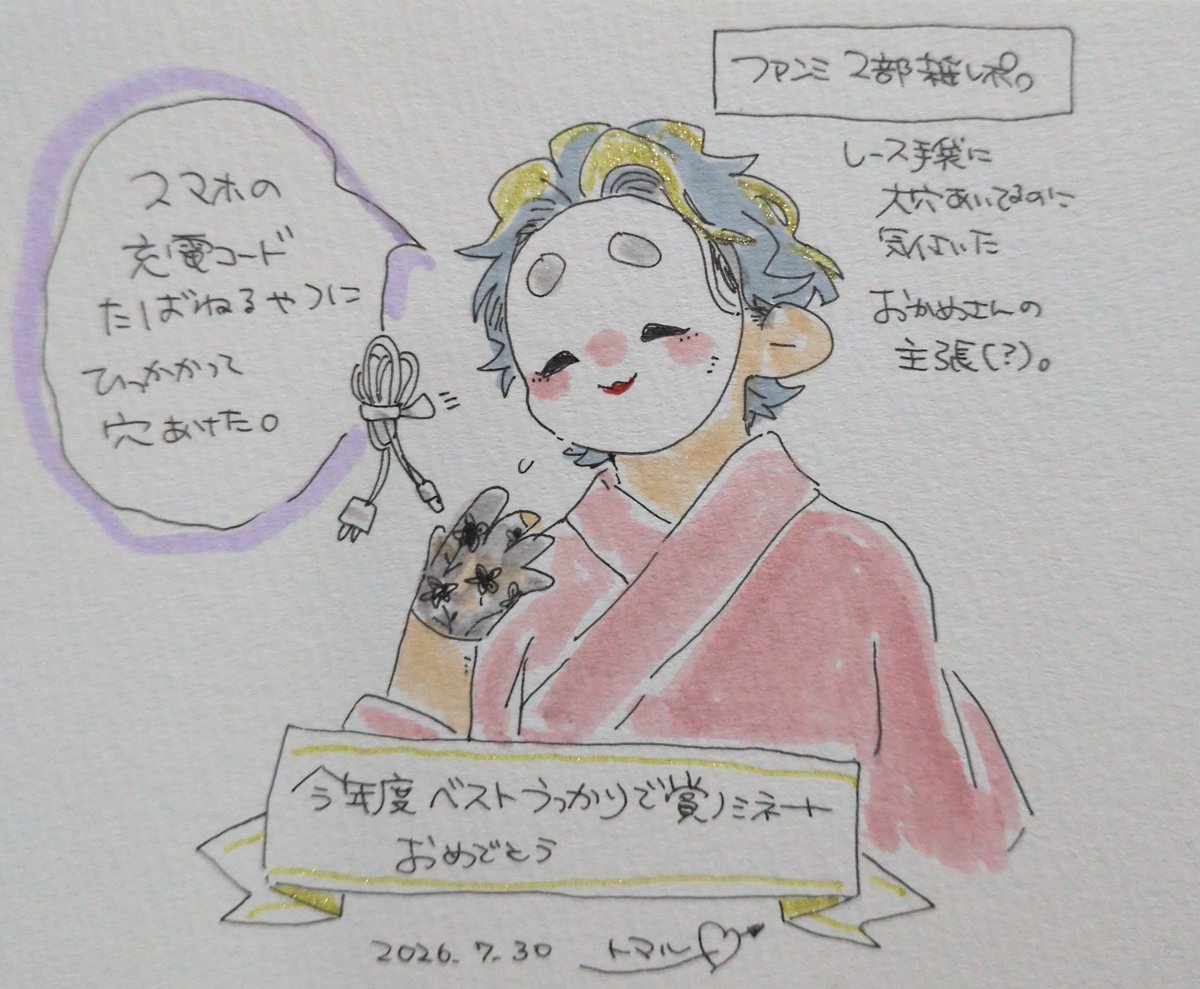 ファンミ 2部 雑レポ。
レース手袋に
大穴あいてるのに
気付いた
おかめさんの
主張(?)。
スマホの
充電コード
たばねるやつに
ひっかかって
穴あけた。
今年度 ベストうっかりで賞ノミネート
おめでとう
2026.7.30 トマル